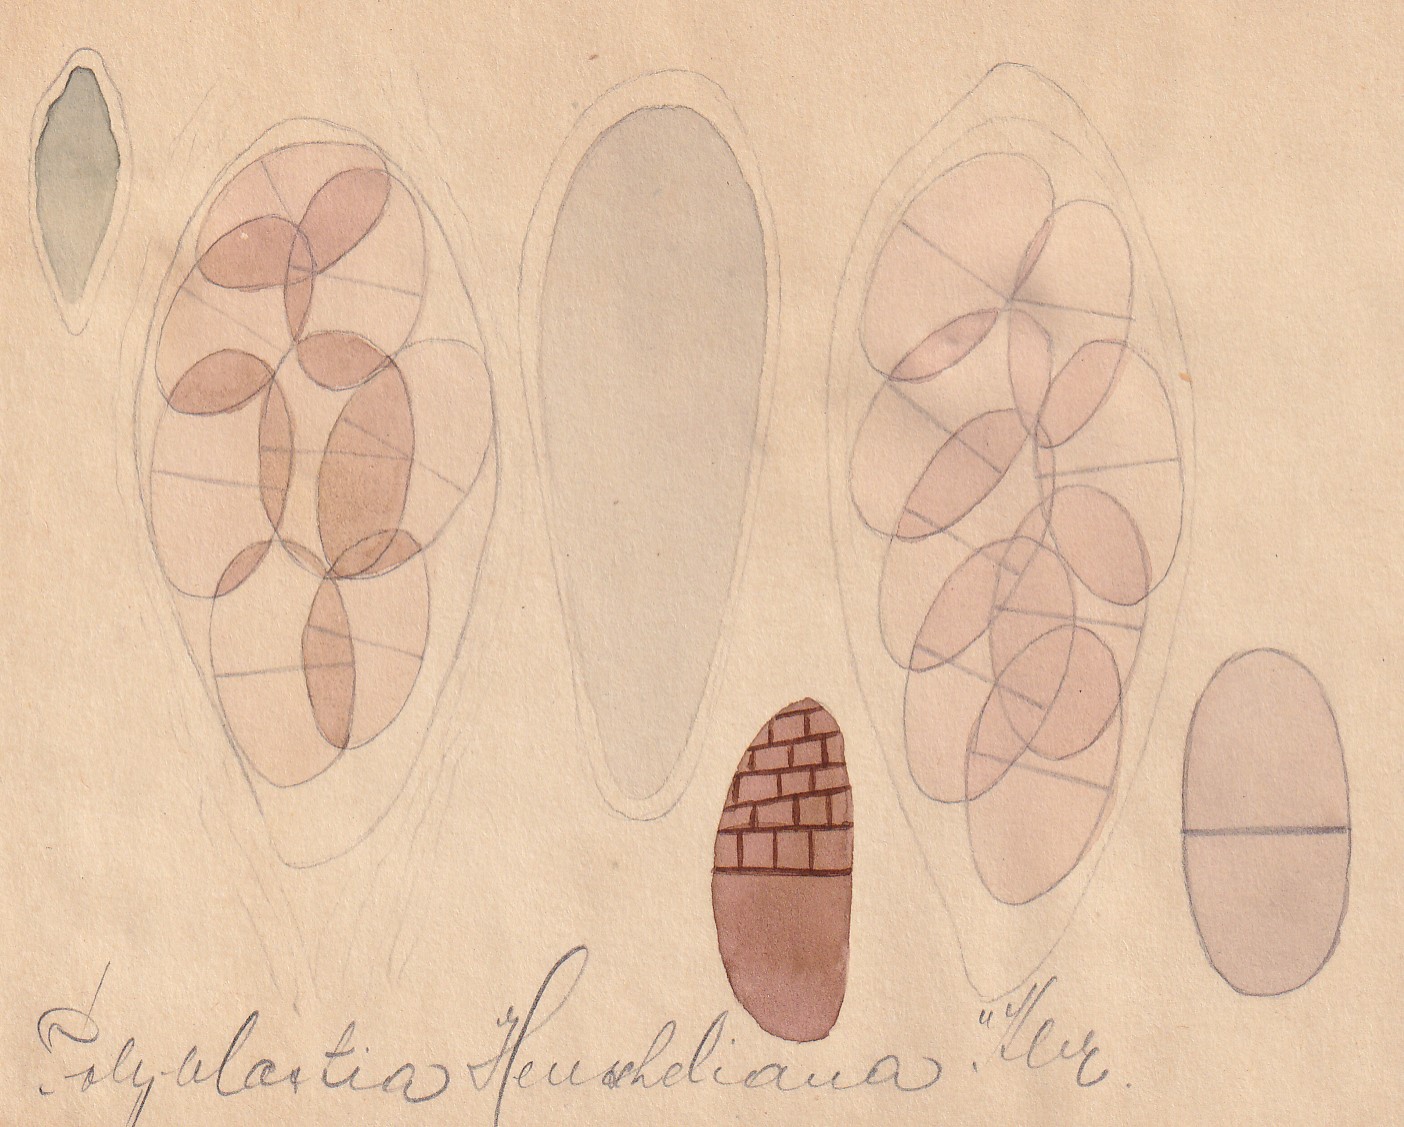 Polyblastia Henscheliana "Kbr.